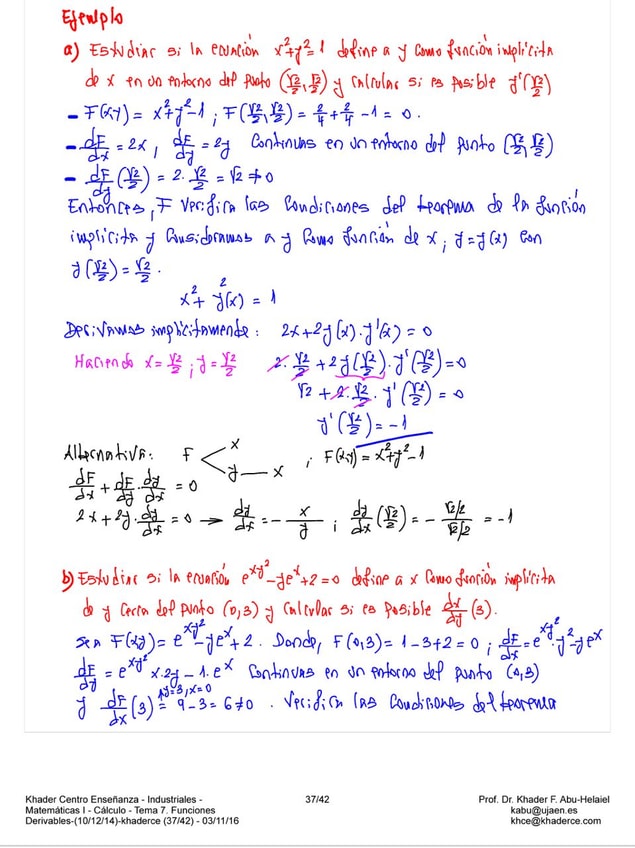 Ejemplo
a) Estudiar si la ecuación x²+y²=1 define a y como función implícita
de x en un entorno del punto (√2/2, √2/2) y calcular si es posible y'(√2/2)
- F(x,y) = x²+y²-1 ; F(√2/2, √2/2) = 2/4 + 2/4 - 1 = 0.
- dF/dx = 2x, dF/dy = 2y Continuas en un entorno del punto (√2/2, √2/2)
- dF/dy (√2/2) = 2·√2/2 = √2 ≠ 0
Entonces, F verifica las condiciones del teorema de la función
implícita y consideramos a y como función de x, y=y(x) con
y(√2/2) = √2/2.
x² + y²(x) = 1
Derivamos implícitamente: 2x+2y(x)·y'(x) = 0
Haciendo x = √2/2 ; y = √2/2 2·√2/2 + 2y(√2/2)·y'(√2/2) = 0
√2 + 2·√2/2 · y'(√2/2) = 0
y'(√2/2) = -1
Alternativa: F < x y — x ; F(x,y) = x²+y²-1
dF/dx + dF/dy · dy/dx = 0
2x + 2y·dy/dx = 0 → dy/dx = - x/y ; dy/dx (√2/2) = - √2/2 / √2/2 = -1
b) Estudiar si la ecuación e^xy² - ye^x + 2 = 0 define a x como función implícita
de y cerca del punto (0,3) y calcular si es posible dx/dy (3).
Sea F(x,y) = e^xy² - ye^x + 2. Donde, F(0,3) = 1-3+2 = 0 ; dF/dx = e^xy² · y² - ye^x
dF/dy = e^xy² x·2y - 1·e^x Continuas en un entorno del punto (0,3)
y dF/dx (3) = 9-3 = 6 ≠ 0 . Verifica las condiciones del teorema
y=3, x=0
Khader Centro Enseñanza - Industriales -
Matemáticas I - Cálculo - Tema 7. Funciones
Derivables-(10/12/14)-khaderce (37/42) - 03/11/16
37/42
Prof. Dr. Khader F. Abu-Helaiel
kabu@ujaen.es
khce@khaderce.com